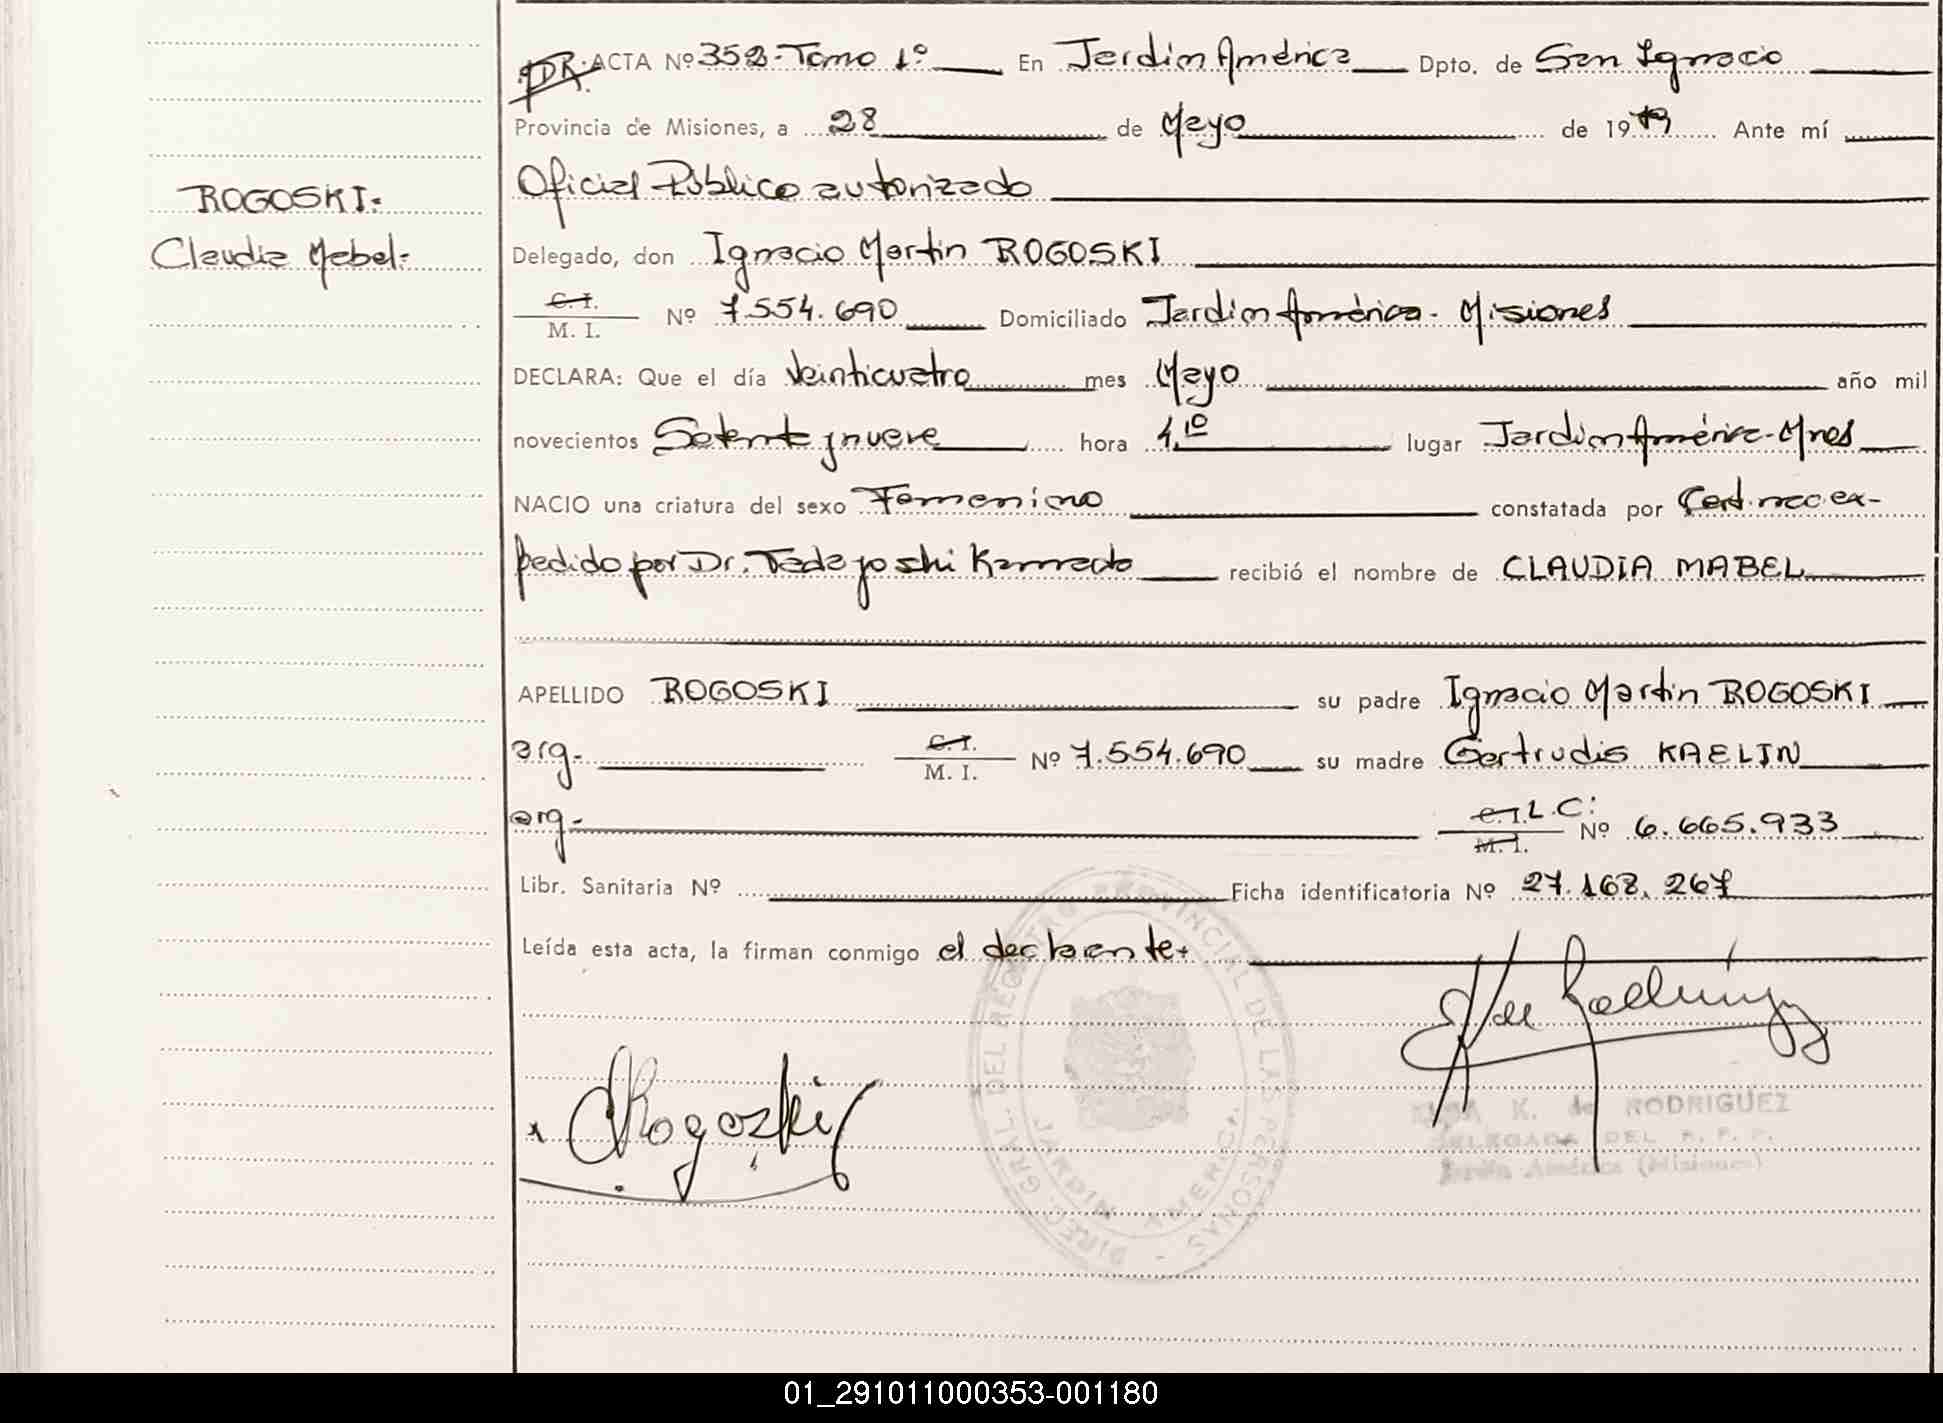 DR. ACTA Nº 352 - Tomo 1º En Jardin América Dpto. de San Ignacio
Provincia de Misiones, a 28 de Mayo de 1979 Ante mí
Oficial Público autorizado
ROGOSKI:
Claudia Mabel:
Delegado, don Ignacio Martin ROGOSKI
C. I.
M. I. Nº 7.554.690 Domiciliado Jardin América - Misiones
DECLARA: Que el día Veinticuatro mes Mayo año mil
novecientos Setenta y nueve hora 1,10 lugar Jardin América - Mnes
NACIO una criatura del sexo Femenino constatada por Cert. nac ex-
pedido por Dr. Tadayoshi Kamada recibió el nombre de CLAUDIA MABEL
APELLIDO ROGOSKI su padre Ignacio Martin ROGOSKI
arg. C. I.
M. I. Nº 7.554.690 su madre Gertrudis KAELIN
arg. C. I. L.C:
M. I. Nº 6.665.933
Libr. Sanitaria Nº Ficha identificatoria Nº 27.168.267
Leída esta acta, la firman conmigo el declarante.
Rogoski
K. de RODRIGUEZ
DELEGADA DEL R. P. P.
Jardín América (Misiones)
DIREC. GRAL. DEL REGISTRO PROVINCIAL DE LAS PERSONAS -
JARDIN AMERICA
01_291011000353-001180